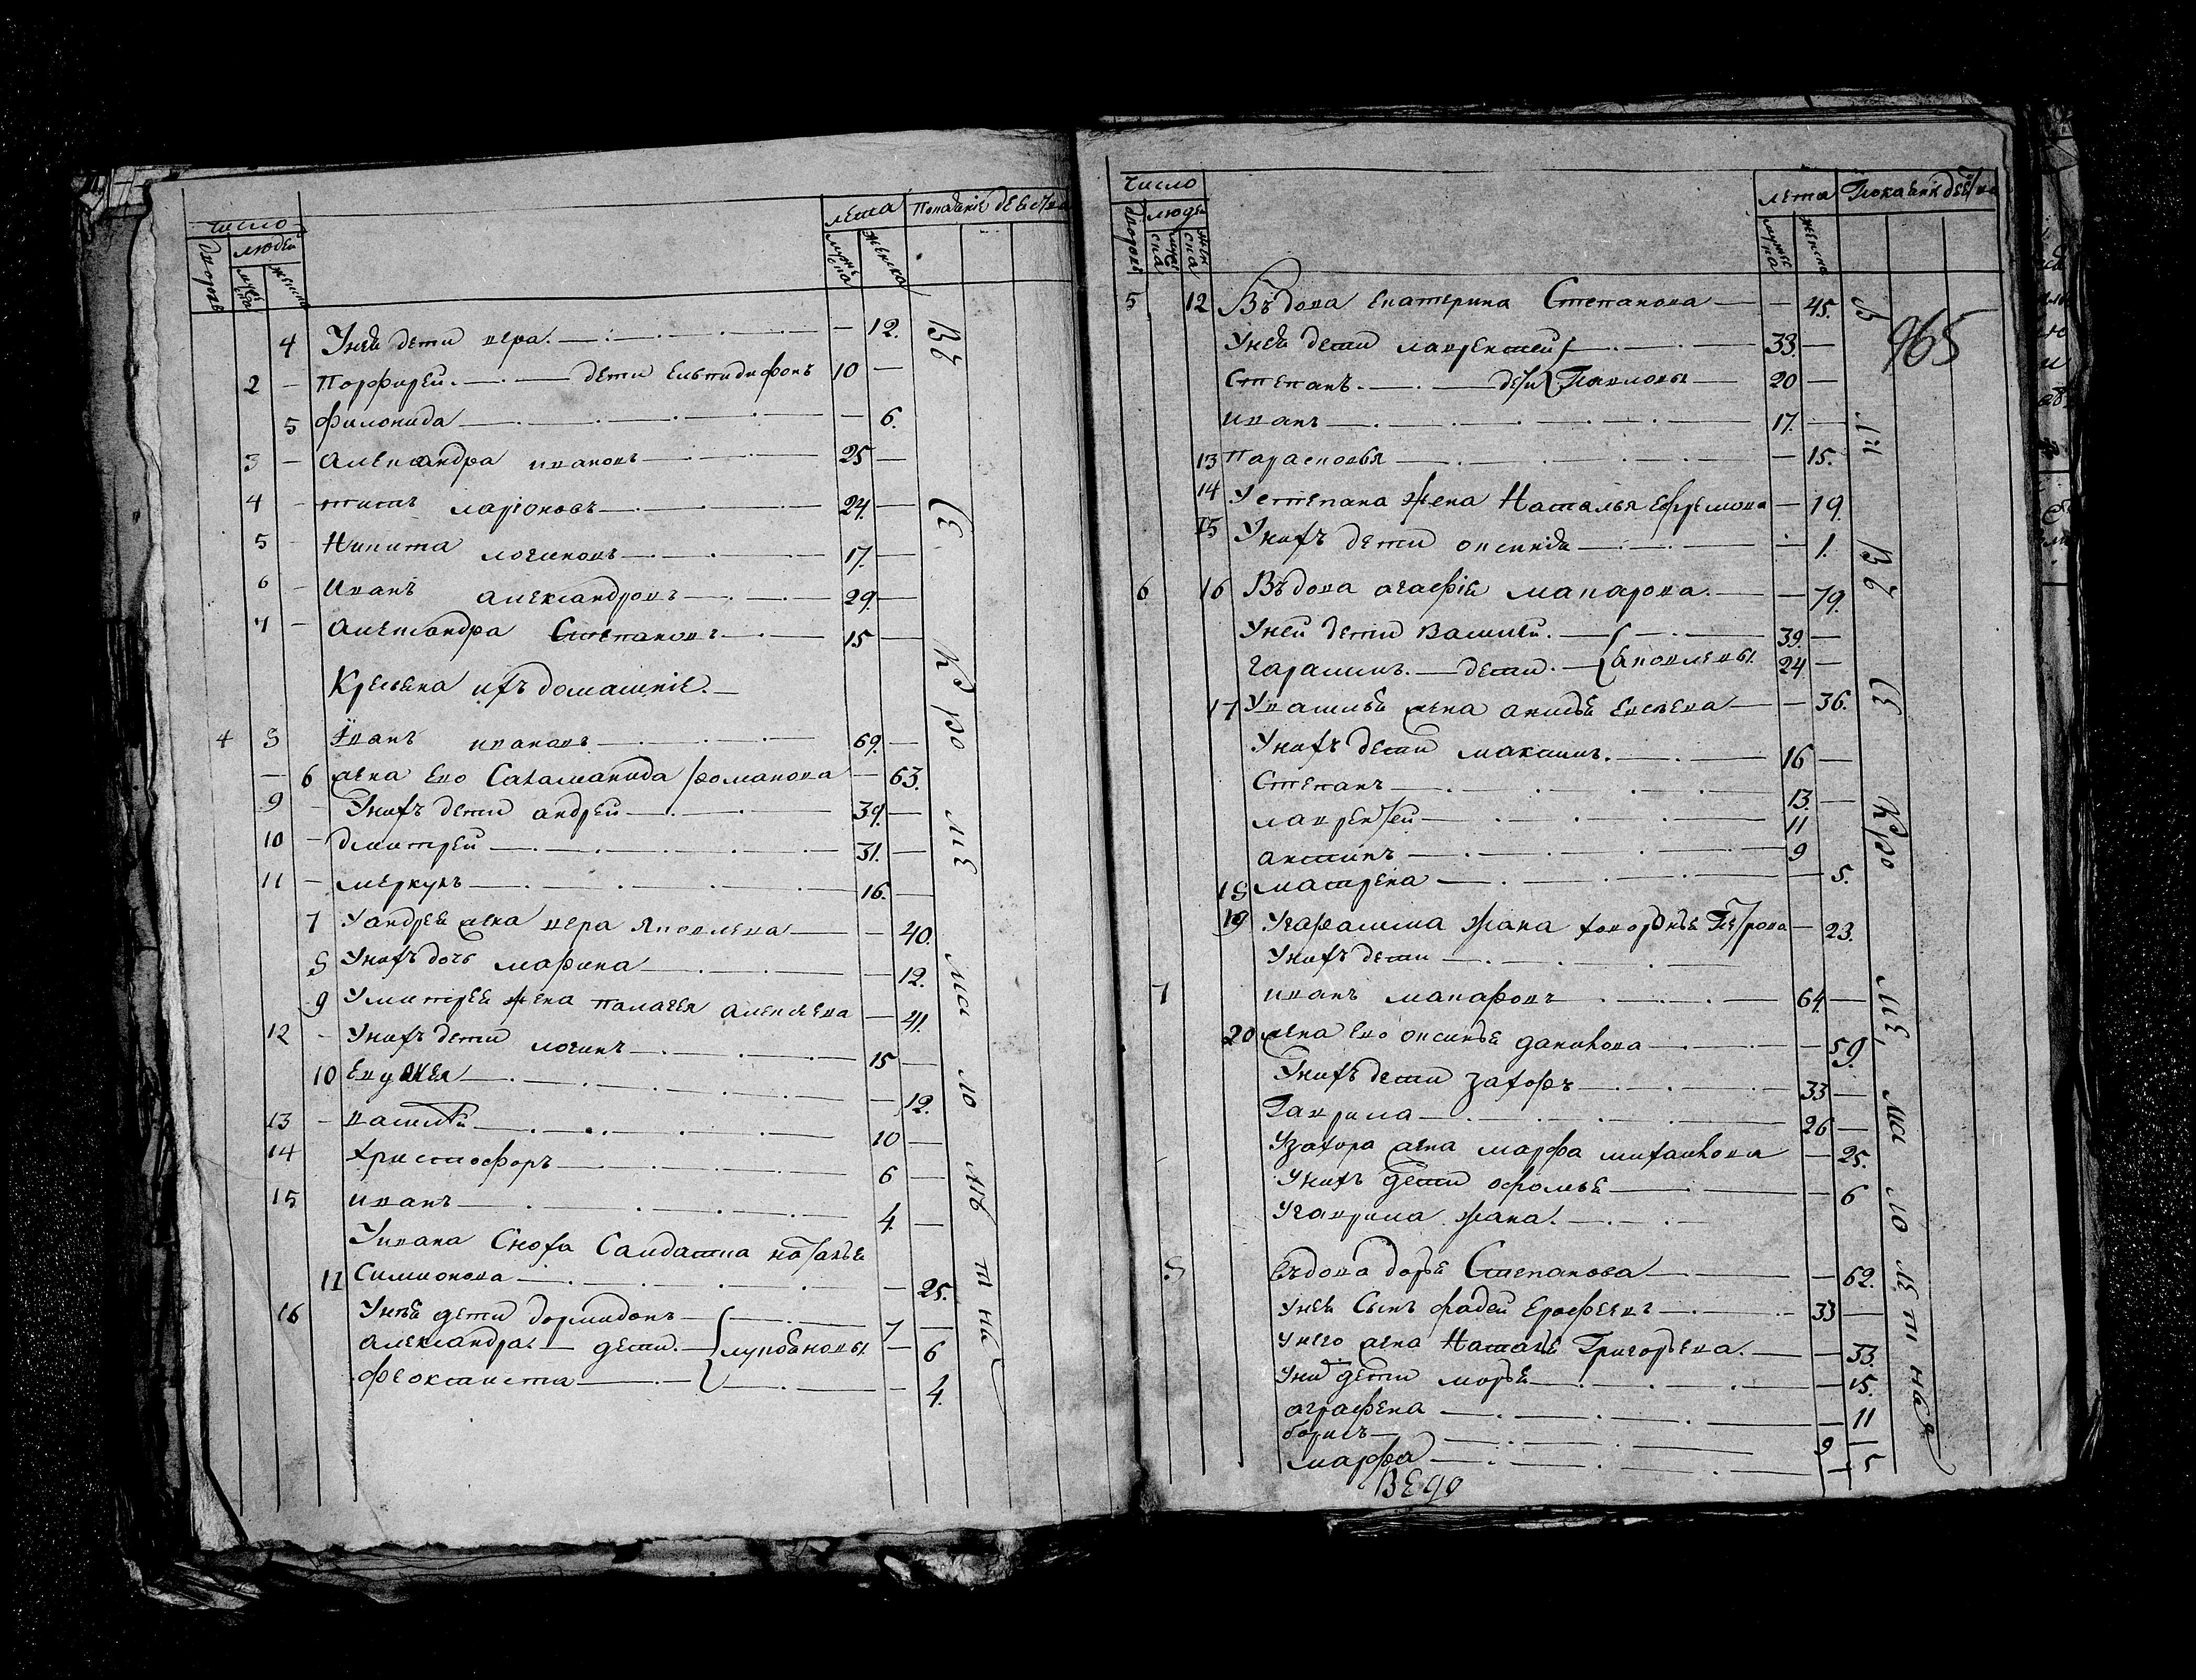 число
лета
Показаніе действа
дворовъ
людей
мужеска
женска
мужеска
женска
4 Унея дети вера. 12.
2 Порфирей. дети Елпидифоръ 10
5 филонида 6.
3 Александра ивановъ 25
4 титъ ларіоновъ 24.
5 Никита логиновъ 17.
6 Иванъ александровъ 29.
7 Александра Степановъ 15
Крестьяна ихъ домашніе.
4 8 Іванъ ивановъ 69.
6 жена ево Саламанида романова 63.
9 Унихъ дети андрей 39.
10 дмитрей 31.
11 меркуръ 16.
7 Уандрея жена вера Яковлева 40.
8 Унихъ дочь марина 12.
9 Умитрея жена палагея алексеева 41.
12 Унихъ дети логинъ 15
10 Евдокея 12.
13 василей 10
14 христофоръ 6
15 иванъ 4.
Уивана Сноха Салдатка наталья
11 Симионова 25.
16 Унея дети дормидонъ 7
александра дети 6
феоктиста 4.
Въ се Кро ме ма ло лѣ т на
число
лета
Показаніе действа
дворовъ
людей
мужеска
женска
мужеска
женска
965
5 12 Въдова екатерина Степанова 45.
Унея дети лаврентей 33.
Степанъ. дети Павловы 20
иванъ 17.
13 парасковья 15.
14 Устепана жена Наталья Ефремова 19.
15 Унихъ дети оксинія 1.
6 16 Въдова агафія макарова. 79.
Унеи дети Василей. 39.
гарасимъ. дети. яковлевы 24
17 Увасилья жена анисья Евсеева 36.
Унихъ дети максимъ. 16
Степанъ 13.
лаврентей 11
антипъ 9
18 матрена 5.
19 Угарасима жана ховоднья Петрова 23.
Унихъ дети
7 иванъ макаровъ 64.
20 жена ево оксинья данилова 59.
Унихъ дети захаръ 33
Гаврила 26
Узахара жена марфа михаилова 25.
Унихъ дети офимья 6
Угаврила жана.
8 въдова дарья Степанова 62.
Унея Сынъ фадей ерофеевъ 33
Унего жена Наталья Григорьева. 33.
Уних дети марья 15.
аграфена 11
борисъ 9
марфа 5
Въ се Кро ме ма ло лѣ т на
ведо